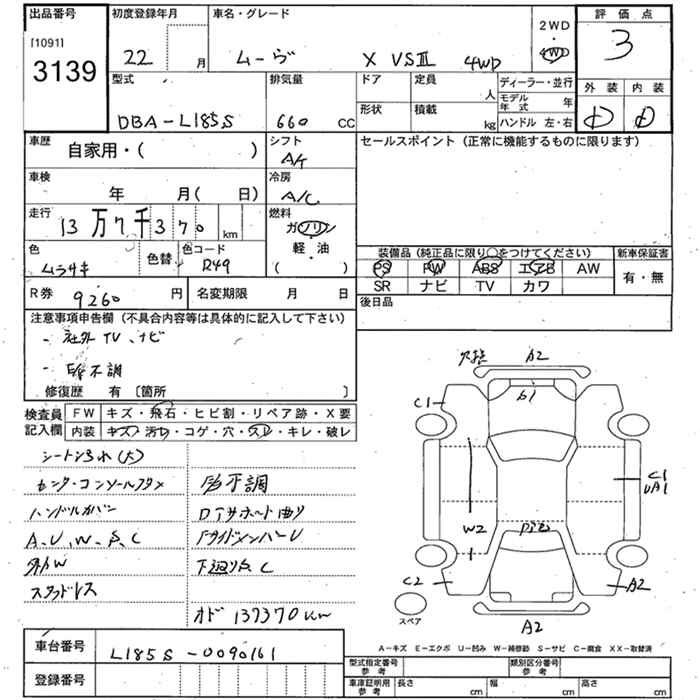 出品番号 初度登録年月 車名・グレード 2WD 評価点
[1091] 3139 22 月 ムーヴ X VSⅢ 4WD 4WD 3
型式 排気量 ドア 定員 人 ディーラー・並行 外装 内装
モデル年式 年
DBA-L185S 660 CC 形状 積載 kg ハンドル 左・右 D D
車歴 自家用・( ) シフト A/t セールスポイント(正常に機能するものに限ります)
車検 年 月( 日) 冷房 A/C
走行 13万7千370 km 燃料 ガソリン
軽・油
( )
色 ムラサキ 色替 色コード R49 装備品(純正品に限り○をつけてください) 新車保証書
PS PW ABS エアB AW 有・無
R券 9260 円 名変期限 月 日 SR ナビ TV カワ
注意事項申告欄(不具合内容等は具体的に記入して下さい) 後日品
- 社外TV、ナビ
- 不調
修復歴 有 [箇所 ]
検査員 FW キズ・飛石・ヒビ割・リペア跡・X要
記入欄 内装 キズ・汚れ・コゲ・穴・スレ・キレ・破レ
A2
C1 b1
C1
UA1
W2
C2 A2
スペア
A2
センターコンソールフタメ 不調
ハンドルカバー
A、U、W、S、C
外カW 下廻りS、C
スタッドレス
オド 137370km
A-キズ E-エクボ U-凹み W-補修跡 S-サビ C-腐食 XX-取替済
車台番号 L185S-0090161
型式指定番号 参考 類別区分番号 参考
登録番号 車庫証明用 参考 長さ cm 幅 cm 高さ cm